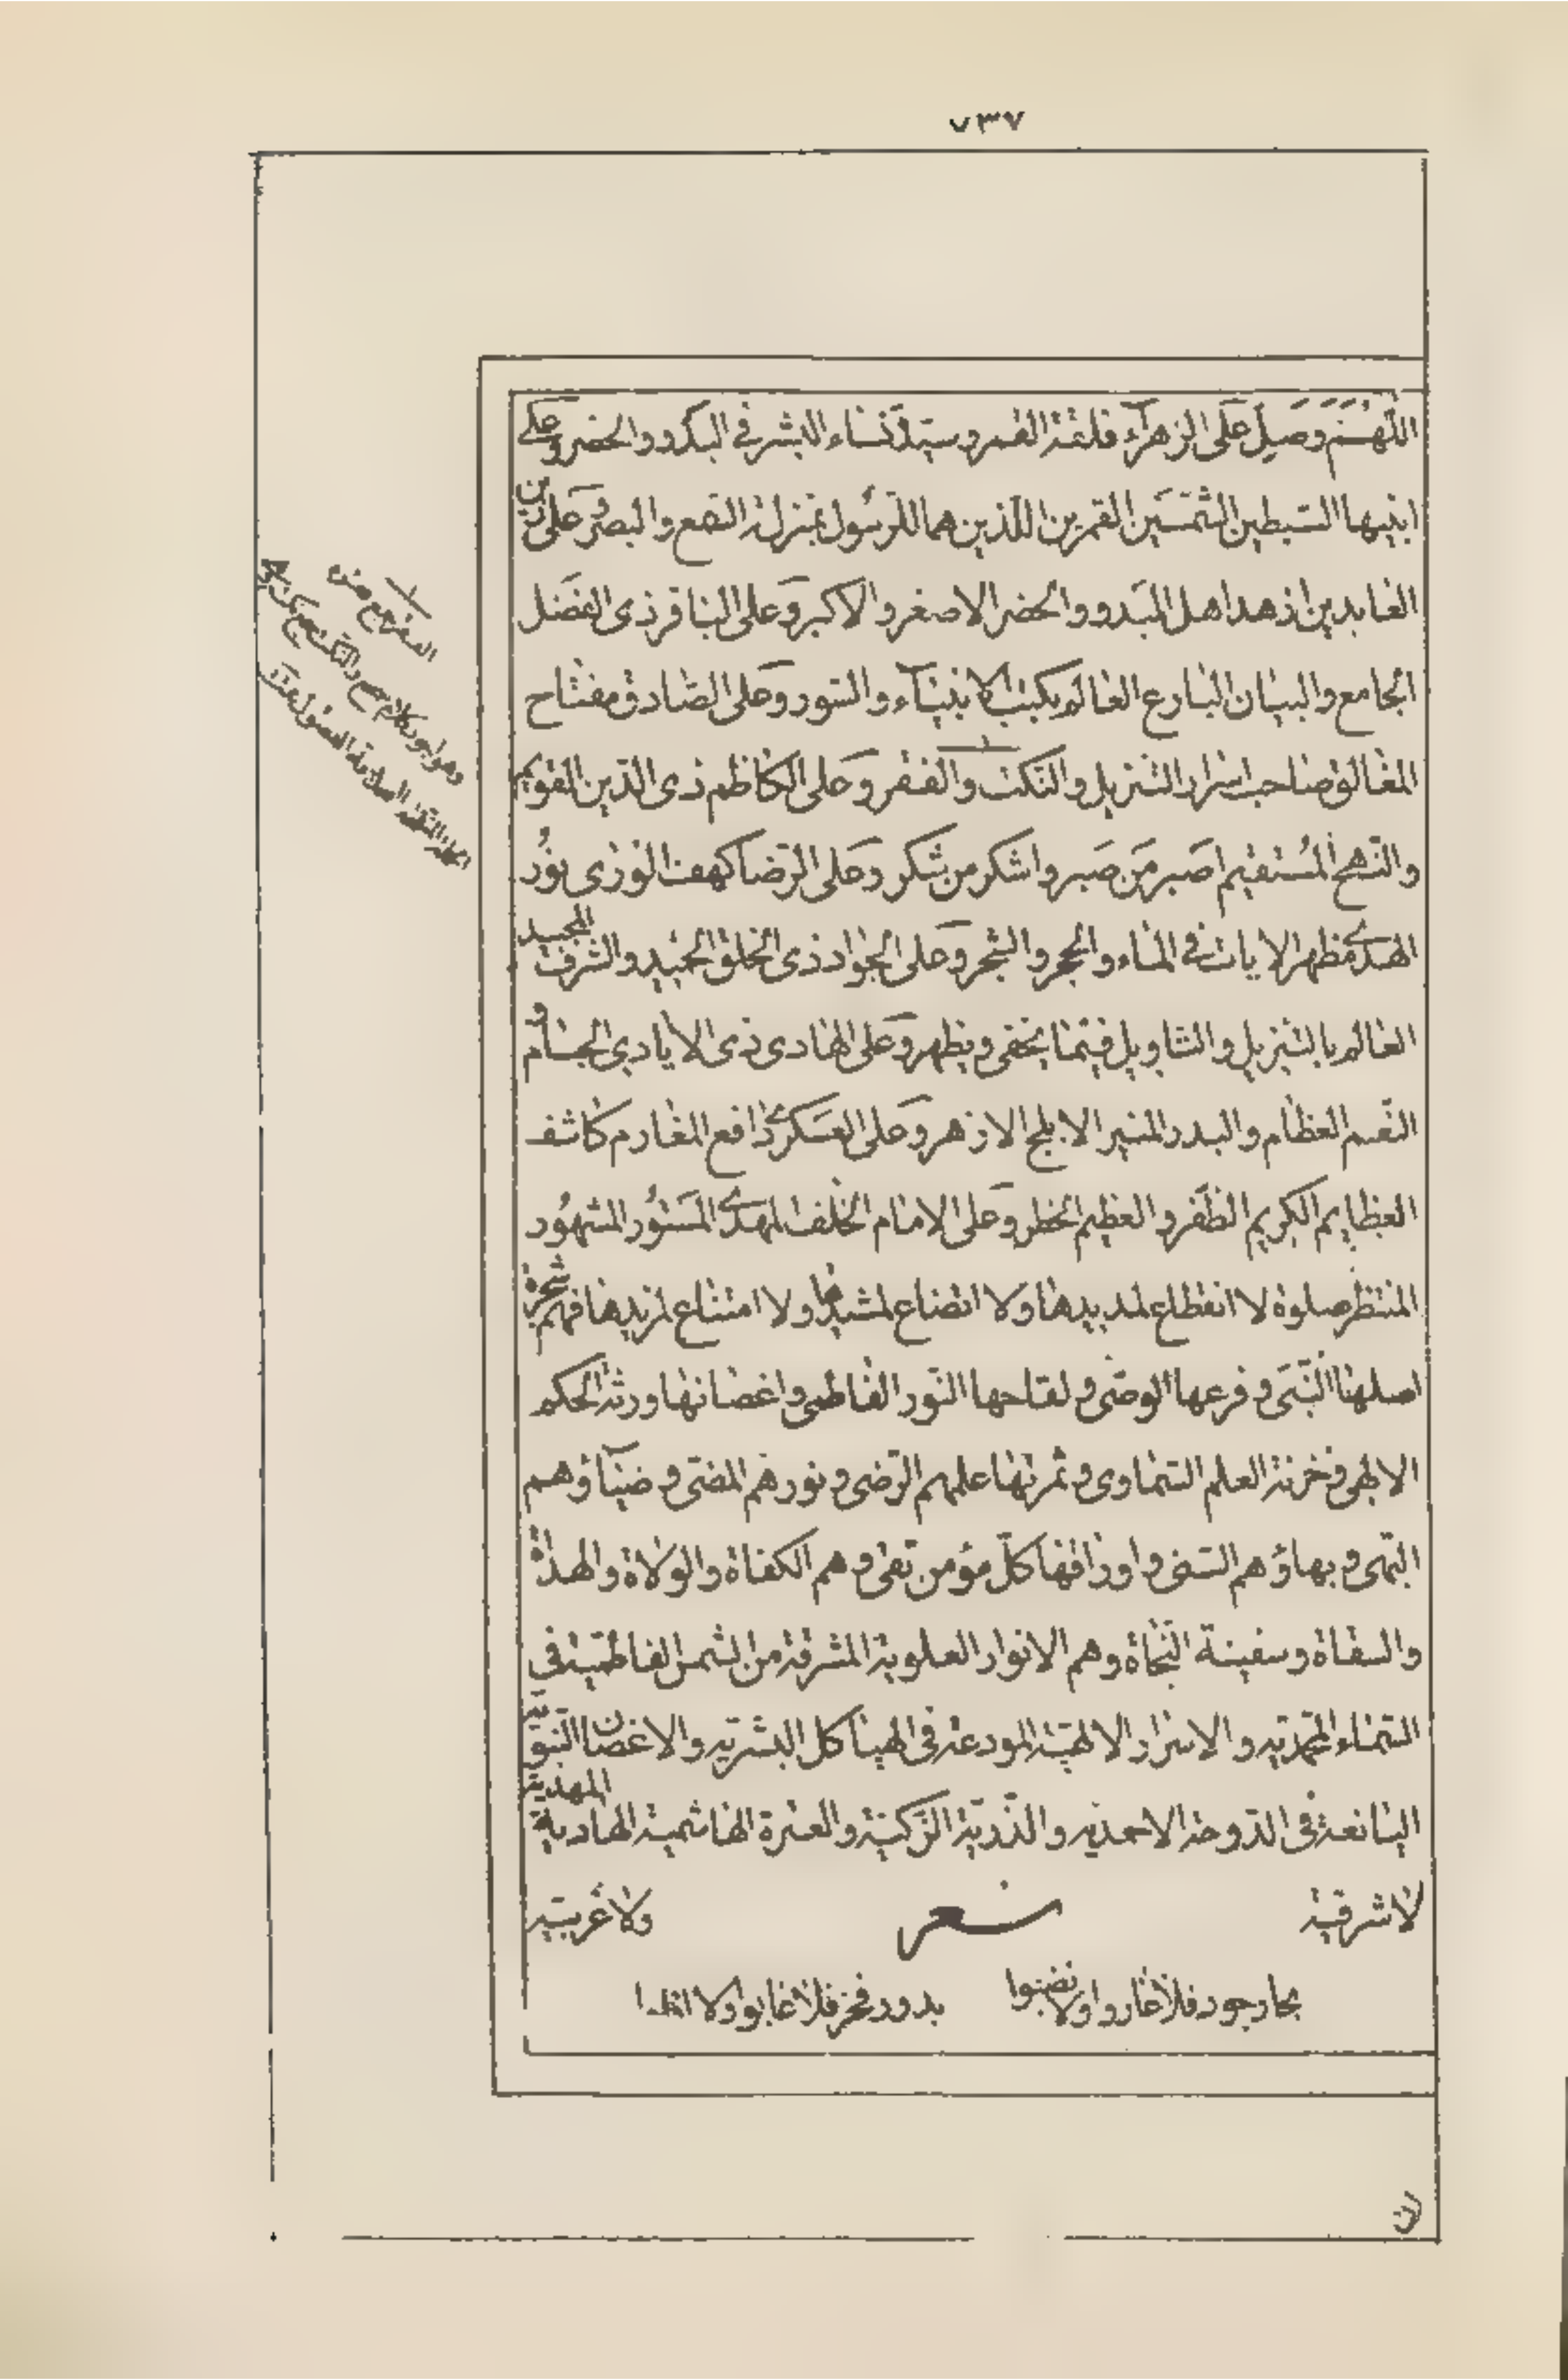 ٧٣٧
اللّهمّ وصلّ على الزهرآء فلقة القمر وسيدة نساء البشر في البدو والحضر وعلى
ابنيها السّبطين الشّمسين القمرين اللّذين هما للرّسول بمنزلة السّمع والبصر وعلى زين
العابدين ازهد اهل البدو والحضر الاصغر والاكبر وعلى الباقر ذى الفضل
الجامع والبيان البارع العالم بكتب الانبيآء والسّور وعلى الصّادق مفتاح
المغالق صاحب اسرار التّنزيل والنّكت والفقر وعلى الكاظم ذى الدّين القويم
والنّهج المستقيم اصبر من صبر واشكر من شكر وعلى الرّضا كهف الورى نور
الهدى مظهر الايات فى الماء والحجر والشّجر وعلى الجواد ذى الخلق الحميد والشّرف المجيد
العالم بالتّنزيل والتّاويل فيما يخفى ويظهر وعلى الهادى ذى الايادى الجسام و
النّعم العظام والبدر المنير الابلج الازهر وعلى العسكرى دافع المغارم كاشف
العظايم الكريم الظّفر والعظيم الخطر وعلى الامام الخلف المهدى المستور المشهور
المنتظر صلوة لا انقطاع لمديدها ولا اتضاع لمشيدها ولا امتناع لمزيدها فهم شجرة
اصلها النّبى وفرعها الوصى ولقاحها النّور الفاطمى واغصانها ورثة الحكم
الالهى وخزنة العلم السّماوى وثمرتها علمهم الرّضى ونورهم المضى وضياؤهم
البهى وبهاؤهم السّنى واوراقها كلّ مؤمن تقى وهم الكفاة والولاة والهداة
والسقاة وسفينة النّجاة وهم الانوار العلوية المشرقة من الشمس الفاطمية في
السّماء المحمّدية والاسرار الالهيّة المودعة فى الهياكل البشريّة والاغصان النبويّة
اليانعة فى الدّوحة الاحمديه والذّرية الزّكيّة والعترة الهاشمية الهادية المهدية
لا شرقية شعر ولا غربية
بحار جود فلا غاروا ولا نضبوا بدور فخر فلا غابوا ولا افلوا